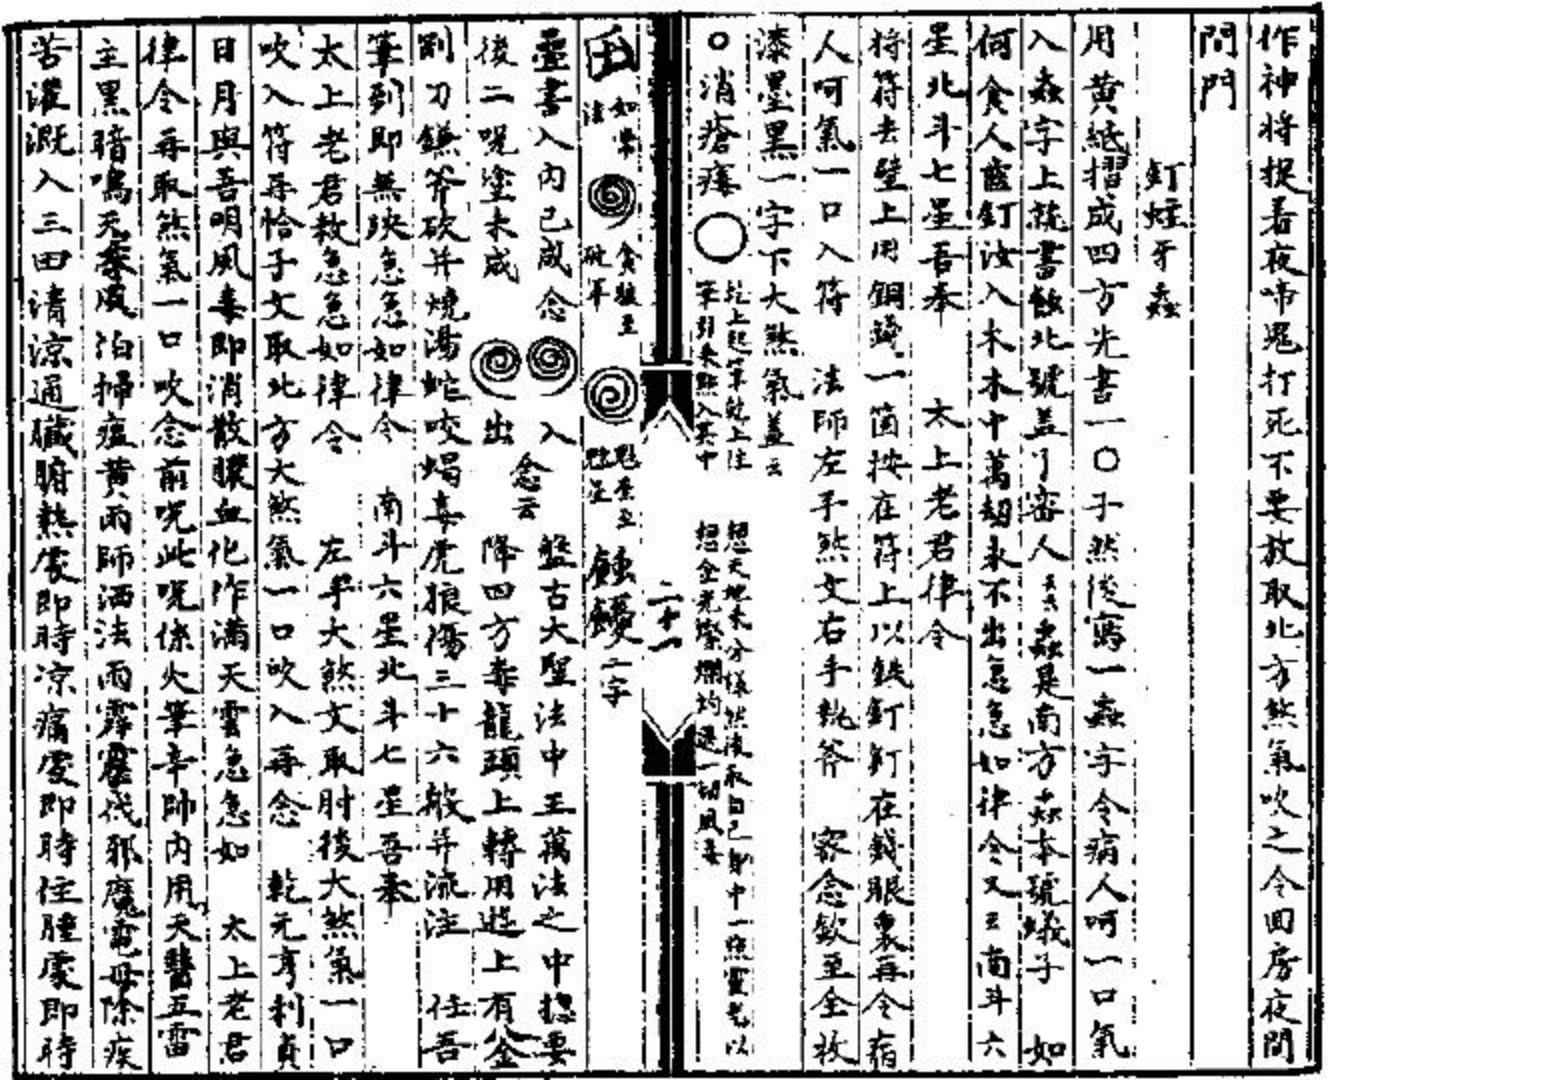 作神将捉着夜啼鬼打死不要放取北方煞氣吹之令回房夜間
問門
釘蛀牙蟲
用黄紙摺成四方先書一〇子然後寫一蟲字令病人呵一口氣
入蟲字上 書 北號盖了密人 蟲是南方 本號蟻子 如
何食人齒釘汝入木木中萬劫永不出急急如律令又云南斗六
星北斗七星吾奉 太上老君律令
将符去壁上用銅錢一箇按在符上以鉄釘釘在錢眼裏再令病
人呵氣一口入符 法師左手煞文右手執斧 密念欽至全收
漆墨黑一字下大煞氣蓋云
〇消瘡瘻〇 圪上起筆乾上住筆引來點入其中 想天地未分様然後取自己身中一點靈光以想金光燦爛均退一切風毒
二十一
如常法 貪狼至破軍 魁罡至 二字
壘書入内已成念 入 念云 盤古大聖法中王萬法之中揔要
後二呪塗未成 出 降四方毒龍頭上轉用逰上有金
劄刀鎌斧砍并燒湯蛇咬蝎毒虎狼傷三十六般并流注 任吾
筆到即無殃急急如律令 南斗六星北斗七星吾奉
太上老君敕急急如律令 左手大煞文取肘後大煞氣一口
吹入符再恰子文取北方大煞氣一口吹入再念 乾元亨利貞
日月與吾明風毒即消散膿血化作滿天雲急急如 太上老君
律令再取煞氣一口吹念前呪此呪係火筆辛帥内用天醫五雷
主黑暗鳴 風伯掃瘟黄雨師洒法雨霹 伐邪魔電母除疾
苦灌溉入三田清涼通臓腑熱處即時凉痛處即時住腫處即時